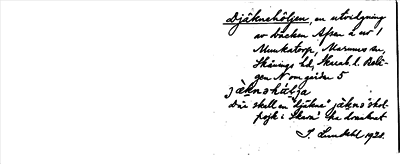 Djäknehöljen, en utvidgning
av bäcken Afsen å nr 1
Munkatorp, Marums sn,
Skånings hd, Skarab. l. Belä-
gen N om gården 5
jäknshälja
Där skall en "djäkne" jäknə skol-
pojk i Skara ha drunknat
S. Lundahl 1920.